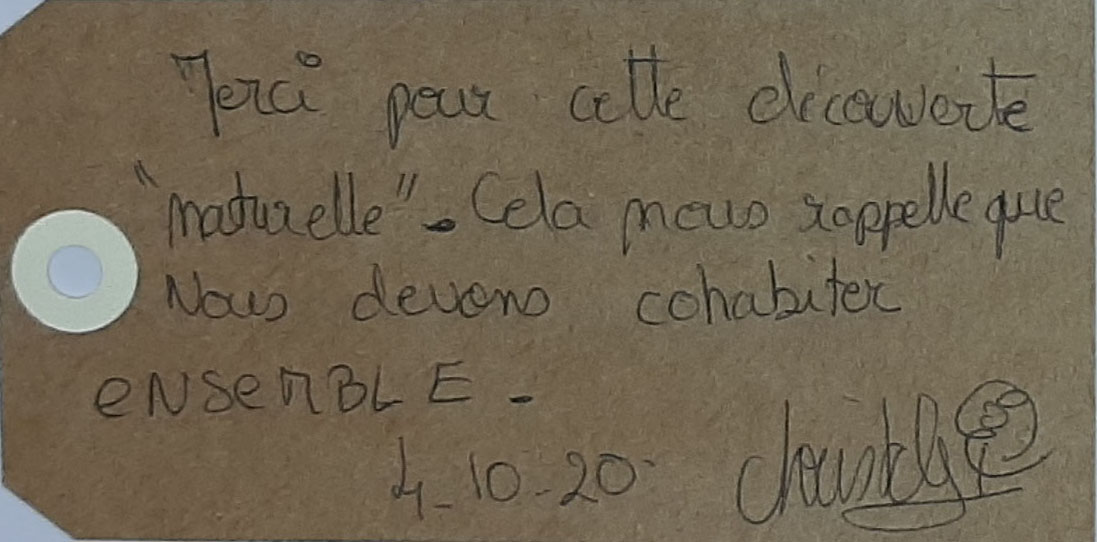 Merci pour cette découverte
"naturelle". Cela nous rappelle que
Nous devons cohabiter
ENSEMBLE.
4-10-20